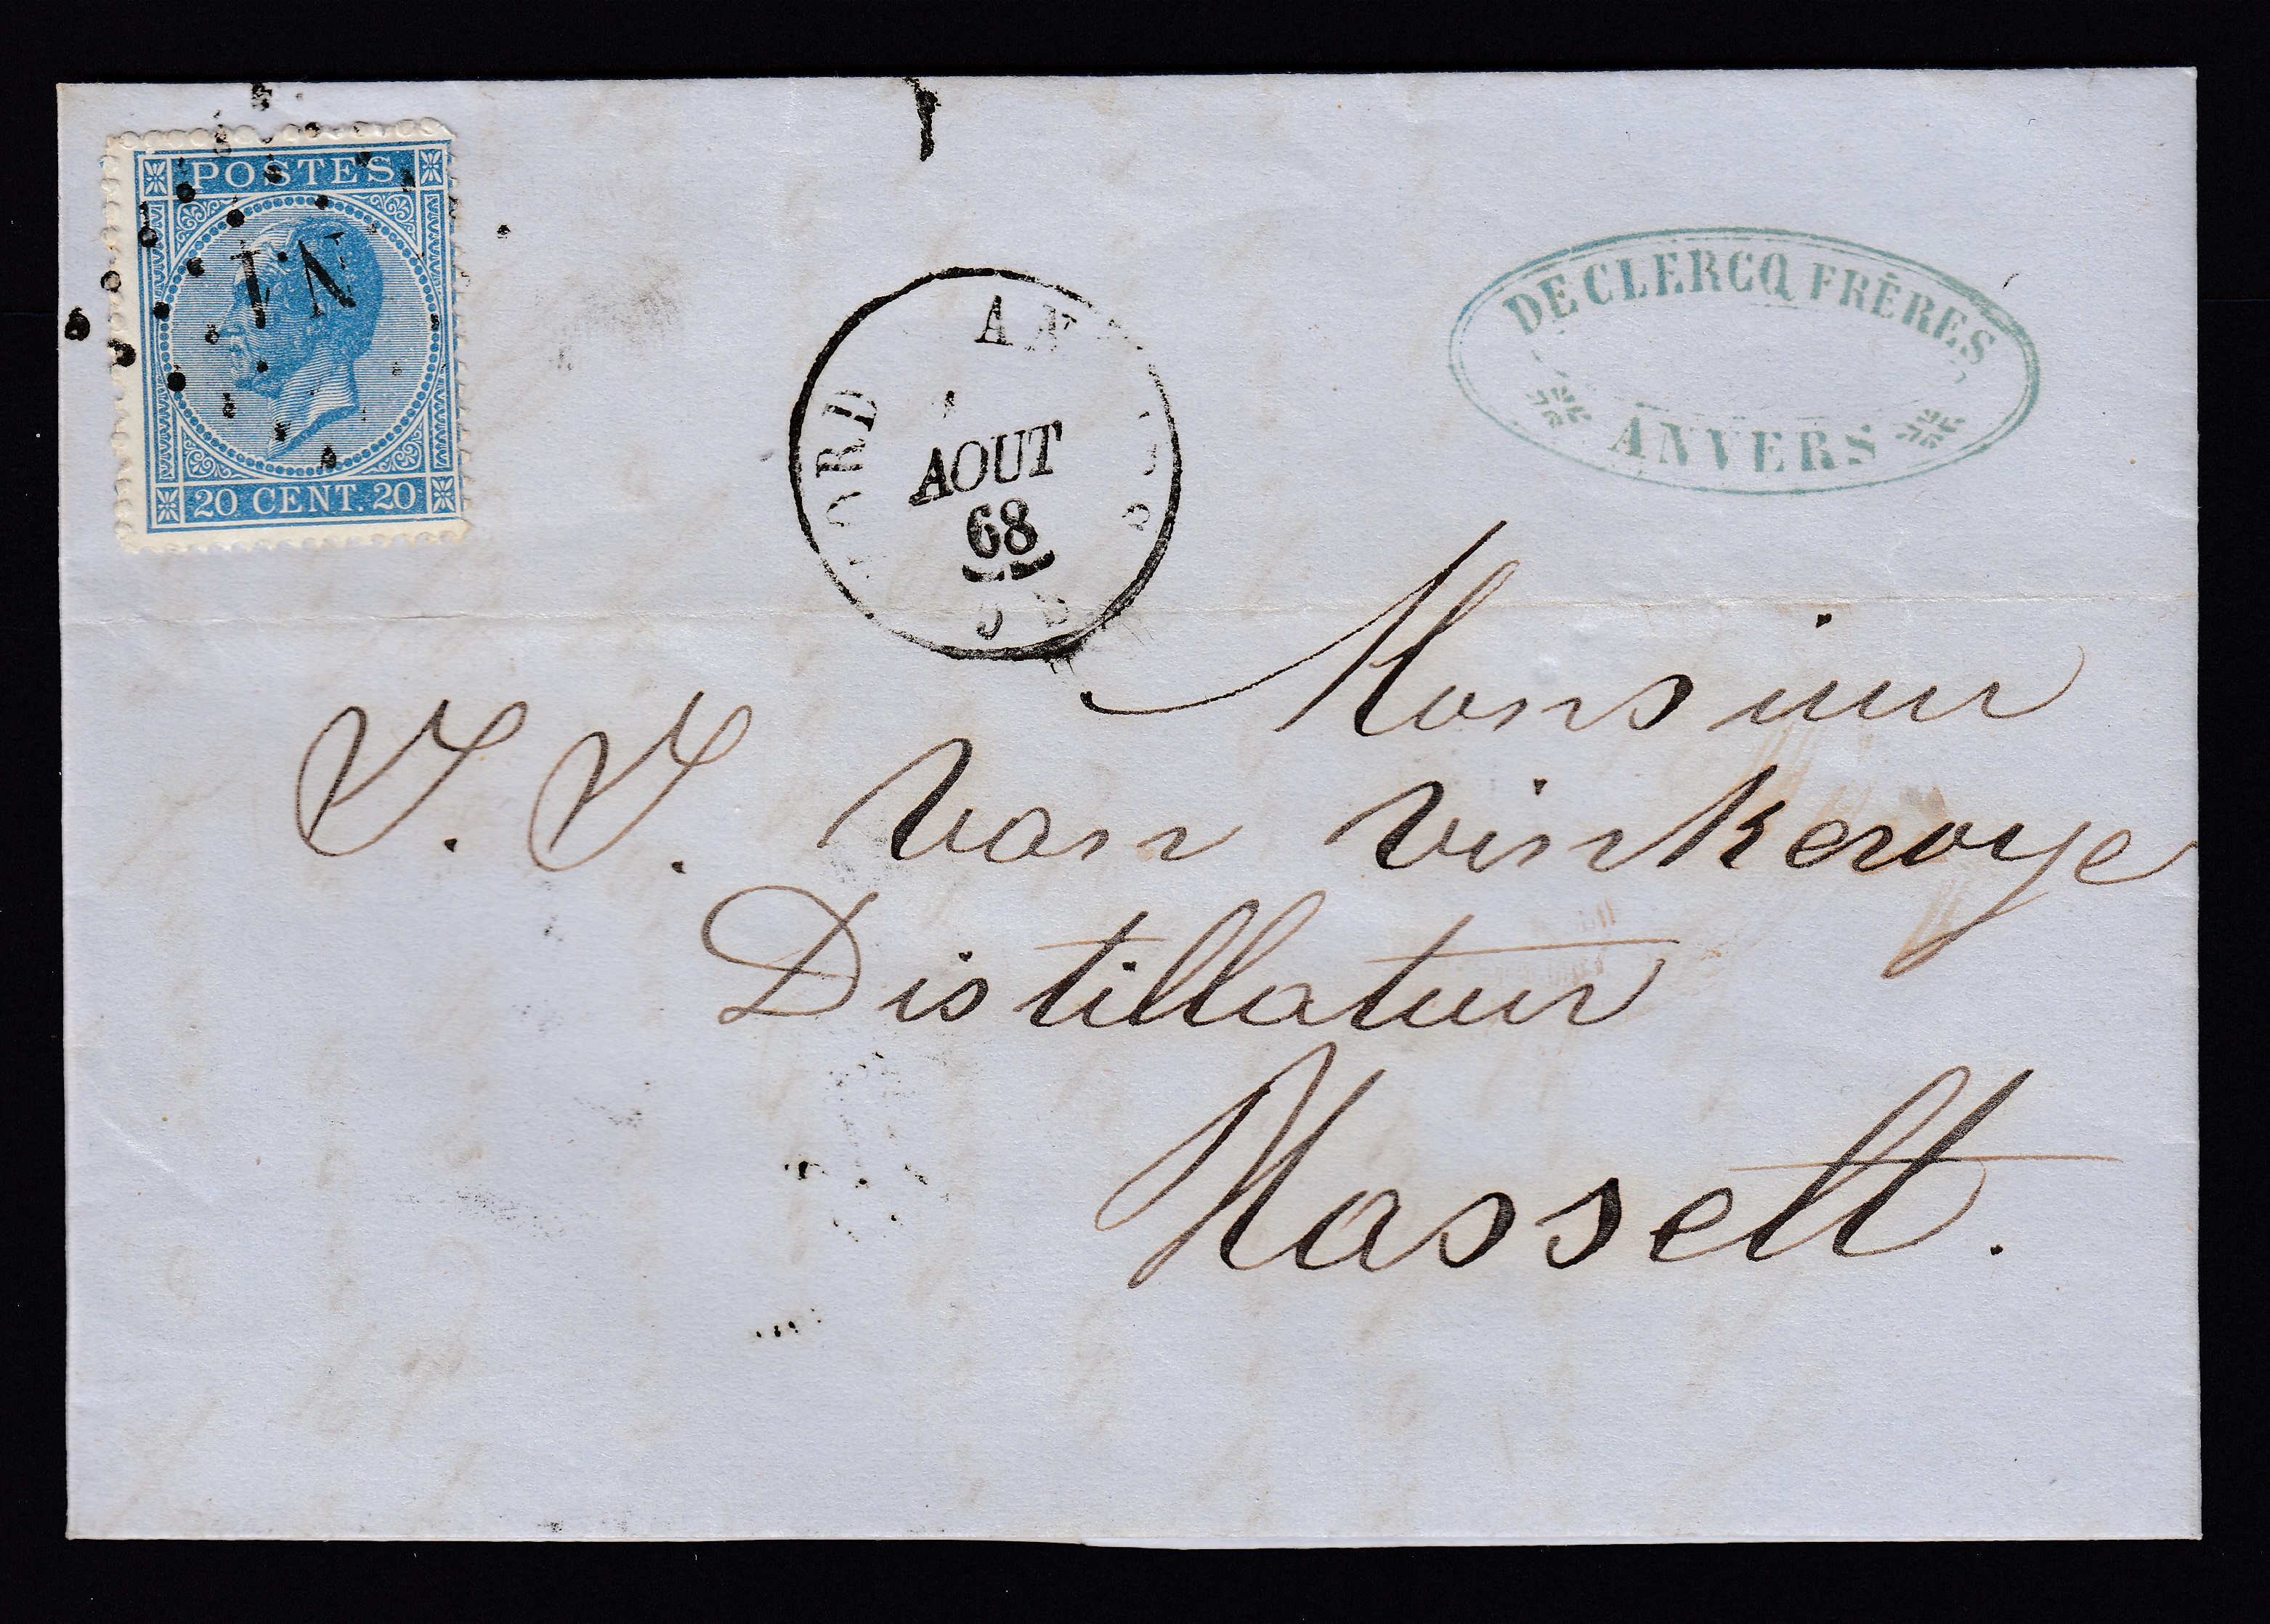 POSTES
N.I
20 CENT. 20
AOUT
68
DE CLERCQ FRÈRES
ANVERS
Monsieur
J. J. Van Vinkeroye
Distillateur
Hasselt.